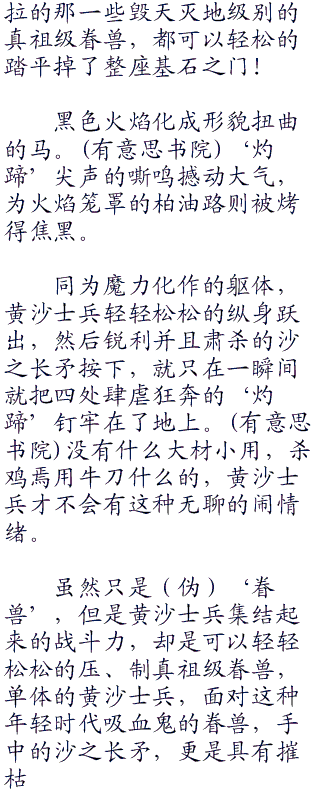 拉的那一些毁天灭地级别的
真祖级眷兽，都可以轻松的
踏平掉了整座基石之门！
黑色火焰化成形貌扭曲
的马。(有意思书院)‘灼
蹄’尖声的嘶鸣撼动大气，
为火焰笼罩的柏油路则被烤
得焦黑。
同为魔力化作的躯体，
黄沙士兵轻轻松松的纵身跃
出，然后锐利并且肃杀的沙
之长矛按下，就只在一瞬间
就把四处肆虐狂奔的‘灼
蹄’钉牢在了地上。(有意思
书院)没有什么大材小用，杀
鸡焉用牛刀什么的，黄沙士
兵才不会有这种无聊的闹情
绪。
虽然只是（伪）‘眷
兽’，但是黄沙士兵集结起
来的战斗力，却是可以轻轻
松松的压、制真祖级眷兽，
单体的黄沙士兵，面对这种
年轻时代吸血鬼的眷兽，手
中的沙之长矛，更是具有摧
枯